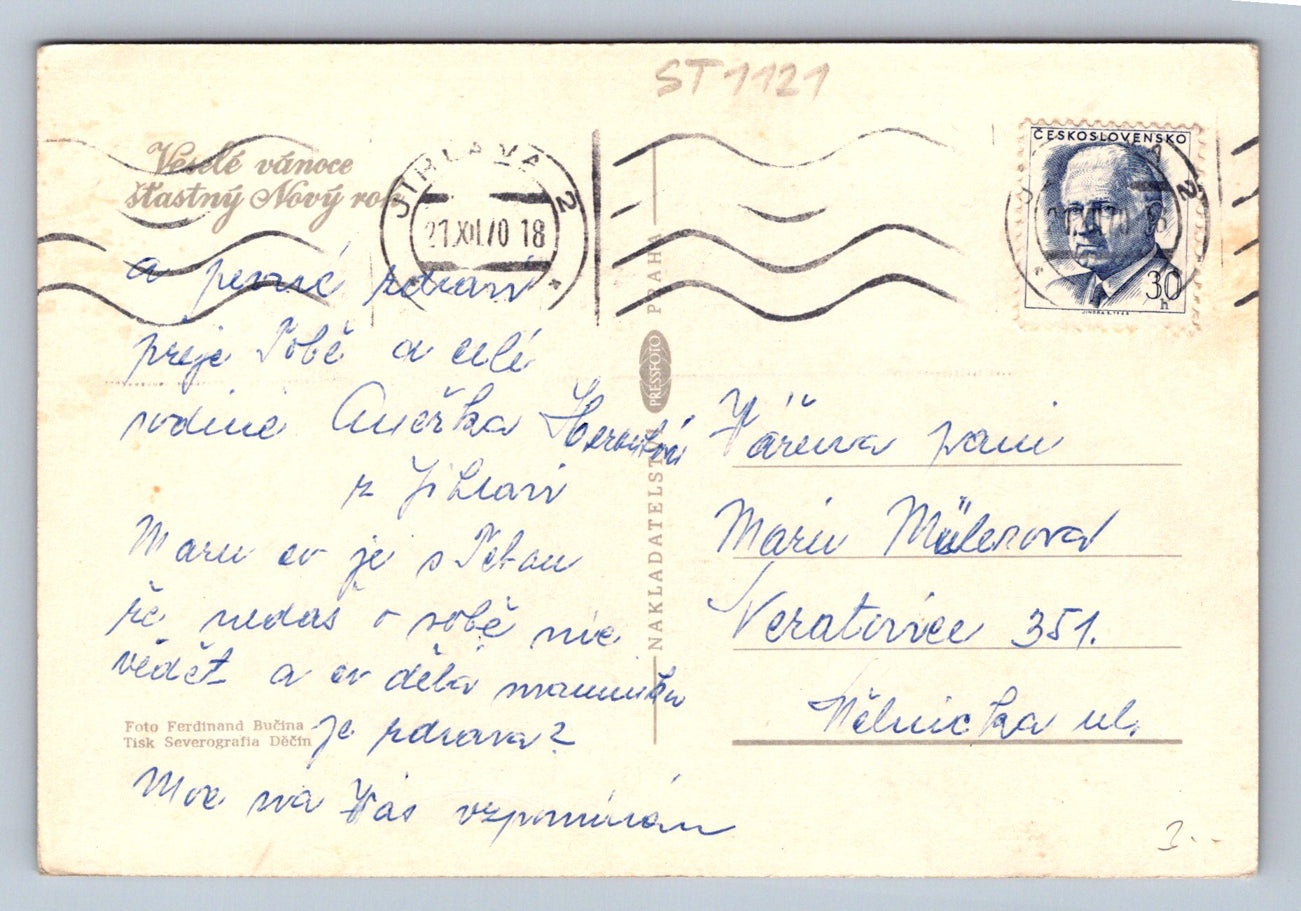 ST 1121
Veselé vánoce
šťastný Nový rok
JIHLAVA 2
21.XII.70 18
ČESKOSLOVENSKO
30
h
a pevné zdraví
přeje Tobě a celé
rodině Anežka
z Jihlavi
Maru co je s Tebou
že nedáš o sobě nic
vědět a co dělá maminka
je zdráva?
Moc na Vás vzpomínám
Foto Ferdinand Bučina
Tisk Severografia Děčín
NAKLADATELSTVÍ PRESSFOTO PRAHA
Vážená paní
Marie Mülerová
Neratovice 351.
Mělnická ul.
3.--